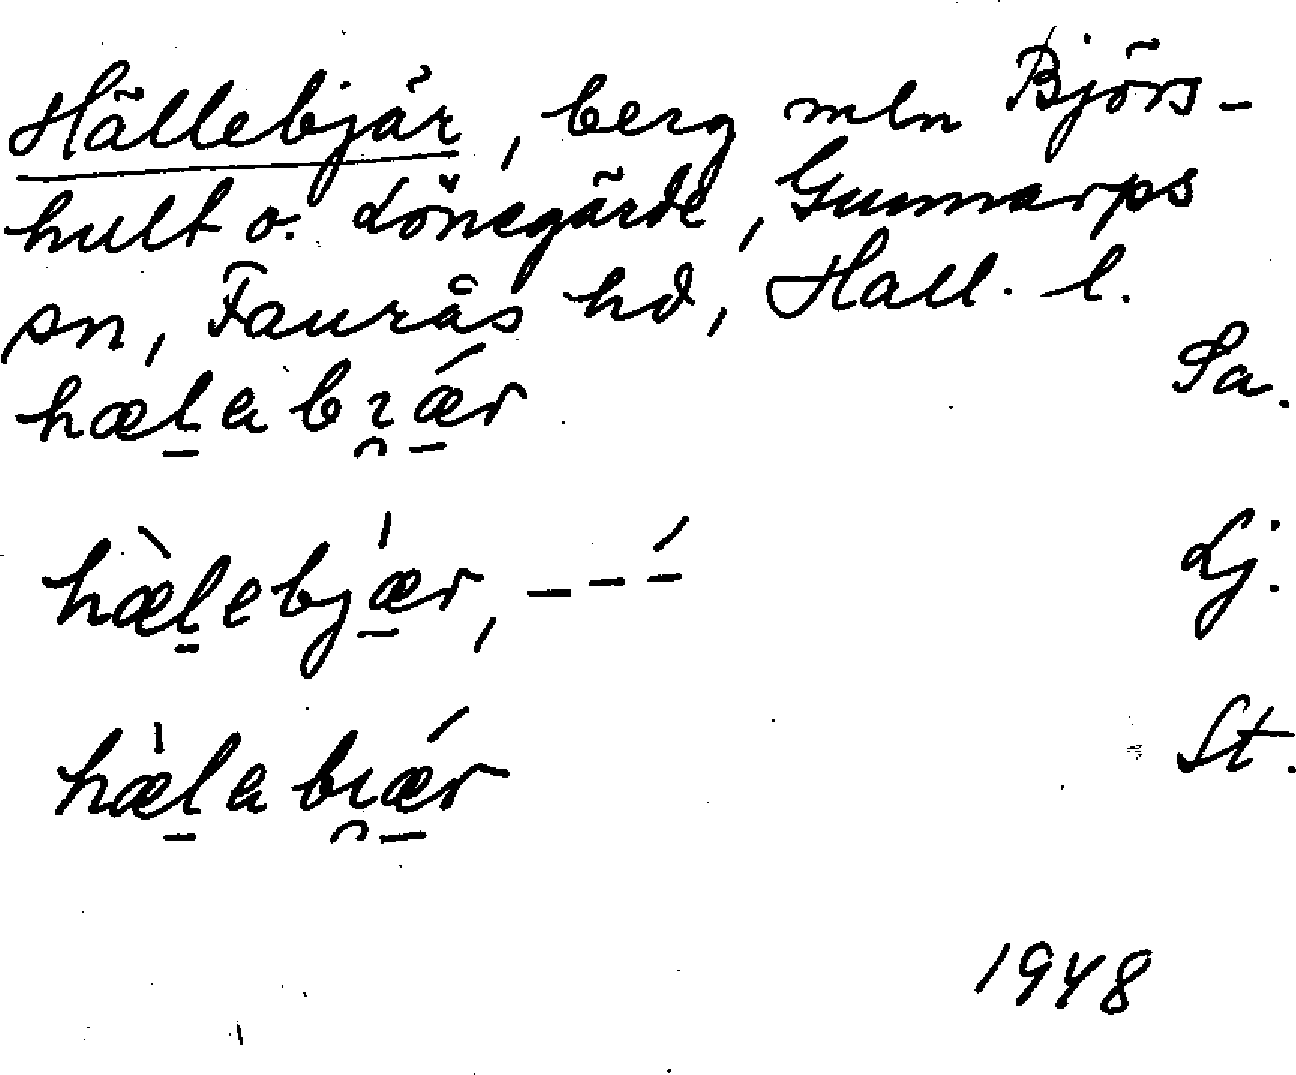 Hällebjär, berg mln Björs-
hult o. Lönegärde, Gunnarps
sn, Faurås hd, Hall. l.
hæl̠abɪ̯ǽ̠r Sa.
hæ̀l̠ebjæ̠̍r, – – –́ Lj.
hæ̀l̠abɪ̯ǽ̠r St.
1948